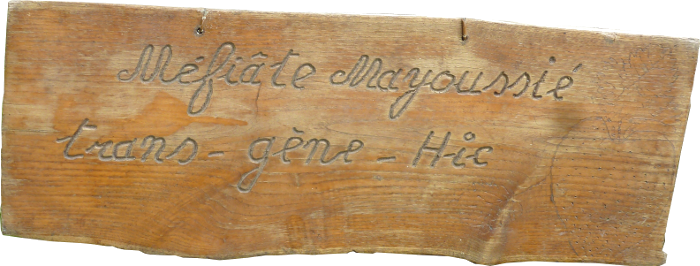 Méfiâte Mayoussié
trans - gène - Hic